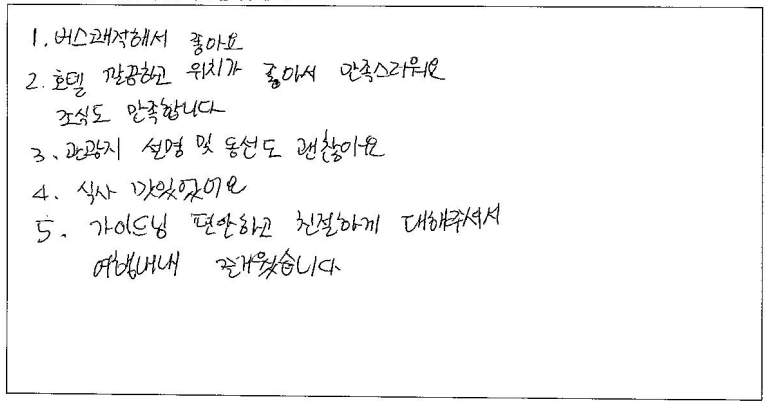 1. 버스쾌적해서 좋아요
2. 호텔 깔끔하고 위치가 좋아서 만족스러워요
조식도 만족합니다
3. 관광지 설명 및 동선도 괜찮아요
4. 식사 맛있었어요
5. 가이드님 편안하고 친절하게 대해주셔서
여행내내 즐거웠습니다